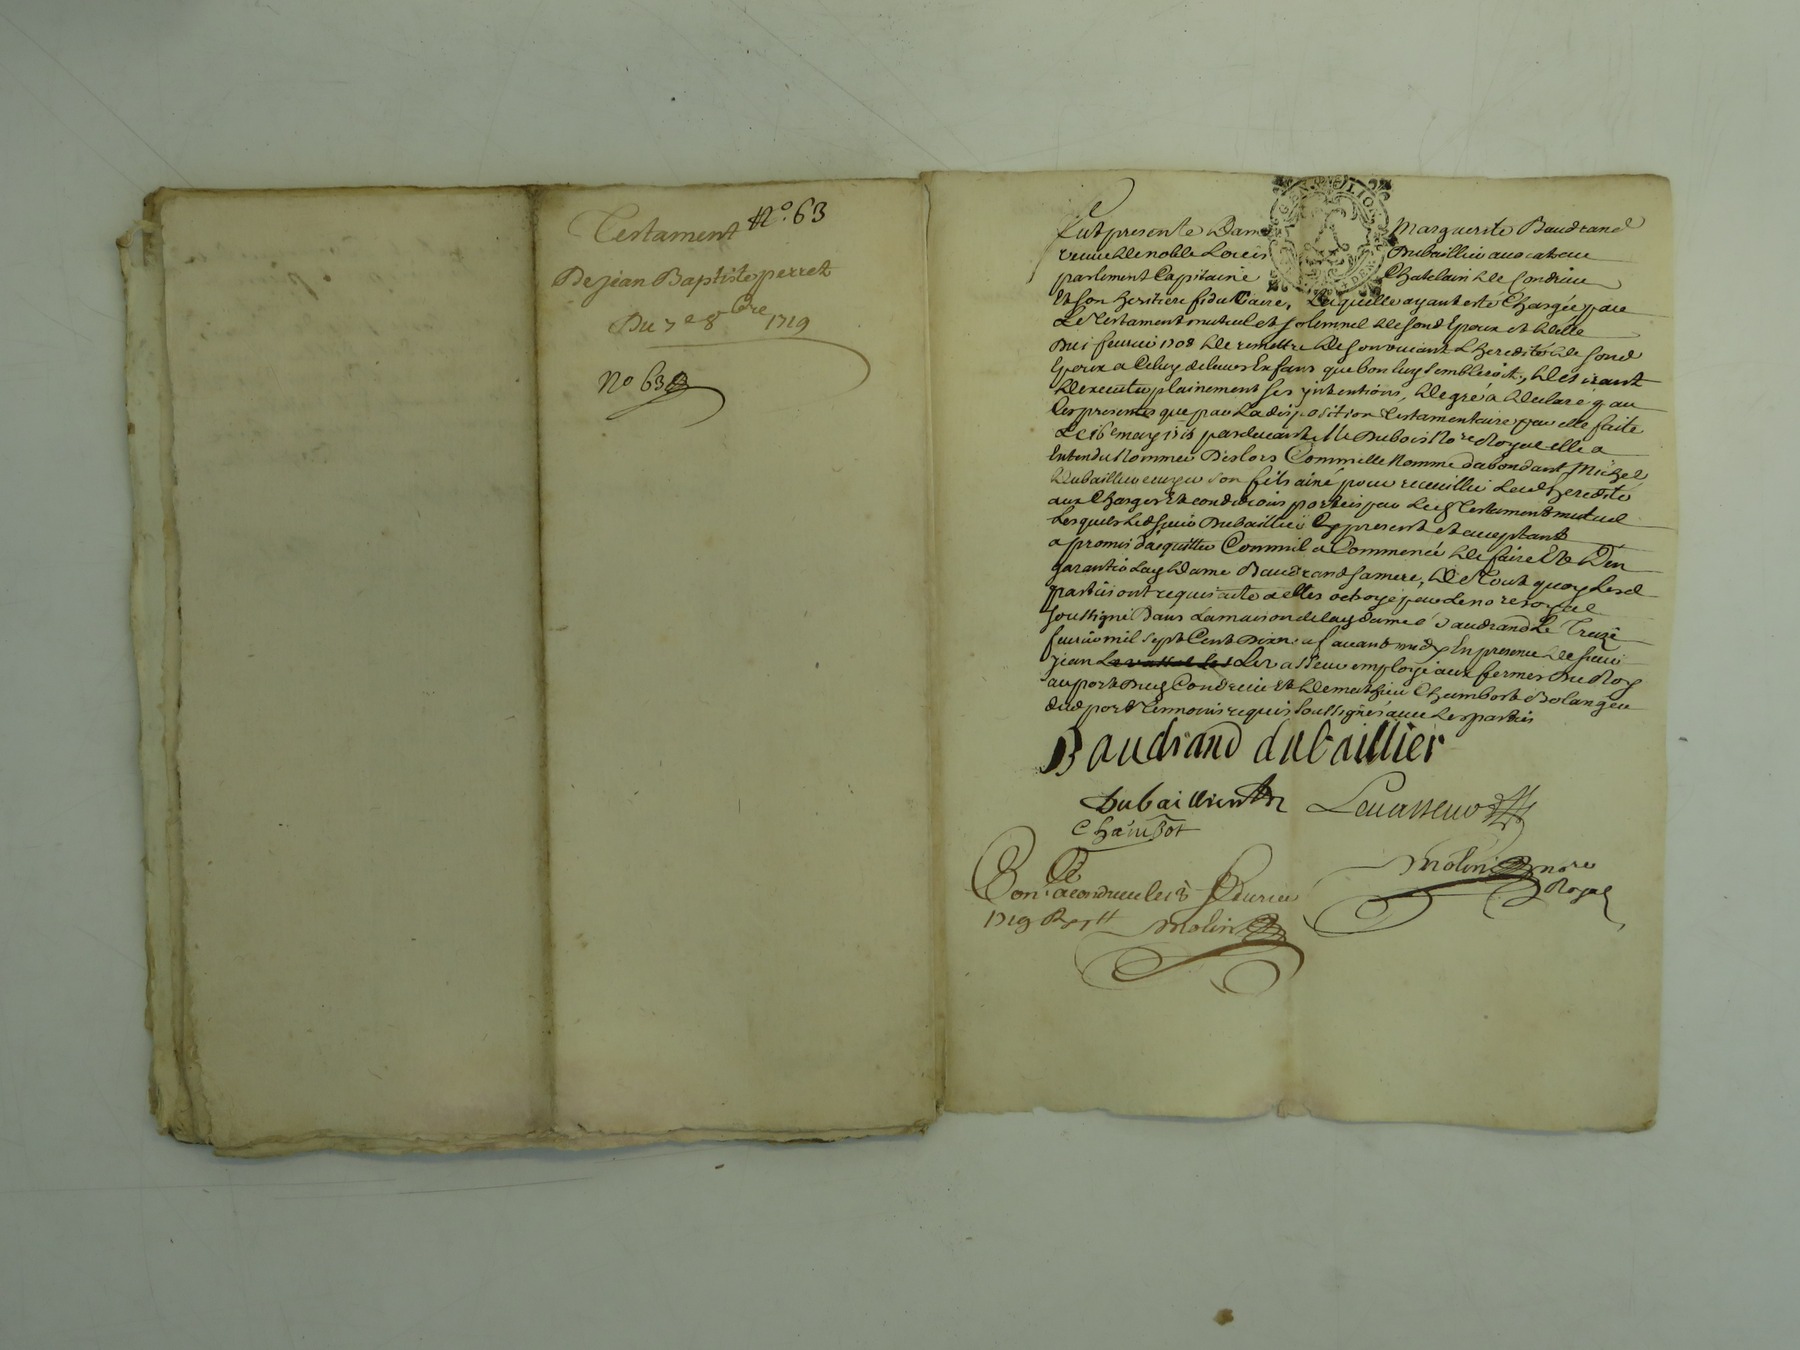 Testament N.º 63
De jean Baptiste perret
Du 7e 8bre 1719
No 63
fut presente Dame Marguerite Baudrand
veuve de noble Louis Dubaillier avocat en
parlement Capitaine Chatelain de Condrieu
Et son heritiere fiduciaire, Laquelle ayant esté Chargée par
Le Testament mutuel et solemnel de fond Epoux et d'elle
Du 1 feurier 1708 de remettre de son vivant L'heredité de fond
Epoux a Celuy de leurs Enfans que bon luy sembleroit, desirant
d'executer plainement ses jntentions, de gré a declaré q par
Ces presentes que par La disposition Testamentaire par elle faite
Le 16e may pardevant Me Dubois Nore Royal elle a
Entendu Nommer Deslors Comme elle Nomme d'abondant Michel
Dubaillier son fils ainé pour recueillir Lad heredité
aux Charges Et conditions portées par Led Testament mutuel
Lesquels led sieur Dubaillier Cy present et acceptant
a promis d'aquitter Comme il a Commencé de faire Et d'en
garantir Lad Dame Baudrand sa mere, De Tout quoy Lesd
parties ont requis acte a elles octroyé par Le nore royal
soussigné Dans La maison de lad dame Baudrand Le Treize
feurier mil sept Cent Dix neuf avant midy En presence de sieur
jean Levasseur employé aux fermes Du Roy
au port Dud Condrieu Et de mathieu Chambot Bolanger
dud port Temoins requis soussignés avec Les parties
Baudrand dubaillier
Dubaillier
Levasseur
Chambot
molin nore
Royal
Con.lé a condrieu le 13 feburier
1719 R
molin